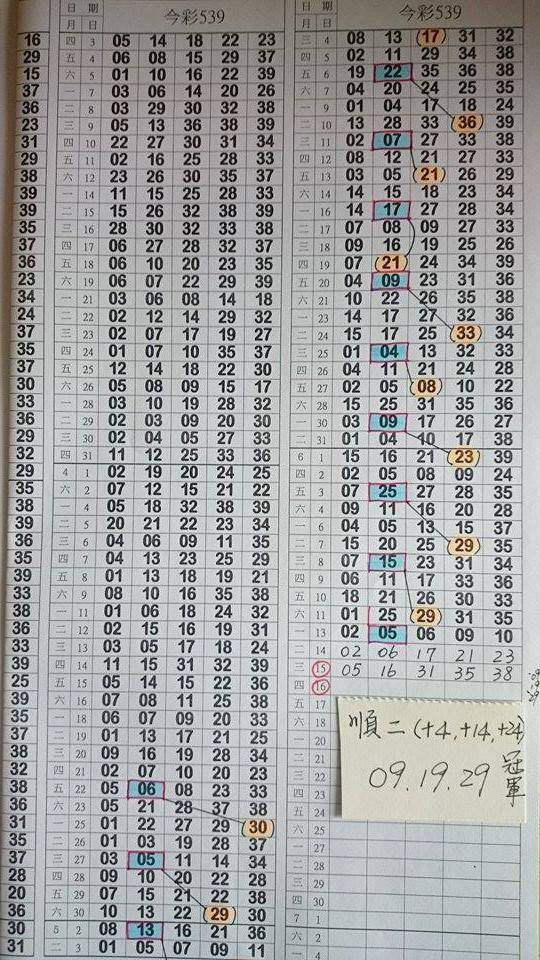 日 期 今彩539
月 日
16 四 3 05 14 18 22 23
29 五 4 06 08 15 29 37
15 六 5 01 10 16 22 39
37 一 7 03 06 14 20 26
36 二 8 03 29 30 32 38
23 三 9 05 13 36 38 39
31 四 10 22 27 30 31 34
29 五 11 02 16 25 28 33
38 六 12 23 26 30 35 37
39 一 14 11 15 25 28 33
39 二 15 15 26 32 38 39
35 三 16 28 30 32 33 38
37 四 17 06 27 28 32 37
36 五 18 06 10 20 23 35
23 六 19 06 07 22 29 39
34 一 21 03 06 08 14 18
24 二 22 02 12 14 29 32
37 三 23 02 07 17 19 27
35 四 24 01 07 10 35 37
37 五 25 12 14 18 22 30
30 六 26 05 08 09 15 17
33 一 28 03 10 19 28 32
36 二 29 02 03 09 20 30
29 三 30 02 04 05 27 33
32 四 31 11 12 25 33 36
29 4 1 02 19 20 24 25
35 六 2 07 12 15 21 22
38 一 4 05 18 32 38 39
39 二 5 20 21 22 23 34
36 三 6 04 06 09 11 35
35 四 7 04 13 23 25 29
39 五 8 01 13 18 19 21
33 六 9 08 10 16 35 38
38 一 11 01 06 18 24 32
36 二 12 02 15 16 19 31
33 三 13 03 05 17 18 24
39 四 14 11 15 31 32 39
25 五 15 05 14 15 22 36
39 六 16 07 08 11 25 38
35 一 18 06 07 09 20 33
37 二 19 01 13 17 21 25
38 三 20 09 16 19 28 34
32 四 21 02 07 10 20 23
38 五 22 05 06 08 23 33
36 六 23 05 21 28 37 38
31 一 25 01 22 27 29 30
35 二 26 01 03 19 28 37
37 三 27 03 05 11 14 34
28 四 28 09 10 20 22 28
35 五 29 07 15 21 22 38
36 六 30 10 13 22 29 30
30 5 2 08 13 16 21 36
31 二 3 01 05 07 09 11
日 期 今彩539
月 日
三 4 08 13 17 31 32
四 5 02 11 29 34 38
五 6 19 22 35 36 38
六 7 04 20 24 25 35
一 9 01 04 17 18 24
二 10 13 28 33 36 39
三 11 02 07 27 33 38
四 12 08 12 21 27 33
五 13 03 05 21 26 29
六 14 14 15 18 23 34
一 16 14 17 27 28 34
二 17 07 08 09 27 33
三 18 09 16 19 25 26
四 19 07 21 24 34 39
五 20 04 09 23 31 36
六 21 10 22 26 35 38
一 23 14 17 27 32 36
二 24 15 17 25 33 34
三 25 01 04 13 32 33
四 26 04 11 21 24 28
五 27 02 05 08 10 22
六 28 15 25 31 35 36
一 30 03 09 17 26 27
二 31 01 04 10 17 38
6 1 15 16 21 23 39
四 2 02 05 08 09 24
五 3 07 25 27 28 35
六 4 09 11 16 20 28
一 6 04 05 13 15 37
二 7 15 20 25 29 35
三 8 07 15 23 31 34
四 9 06 11 17 33 36
五 10 18 21 26 30 33
六 11 01 25 29 31 35
一 13 02 05 06 09 10
二 14 02 06 17 21 23
三 15 05 16 31 35 38
四 16
五 17
六 18
一 20
二 21
三 22
四 23
五 24
六 25
一 27
二 28
三 29
四 30
7 1
六 2
一 4
順二(+4,+14,+24)
09.19.29 冠軍